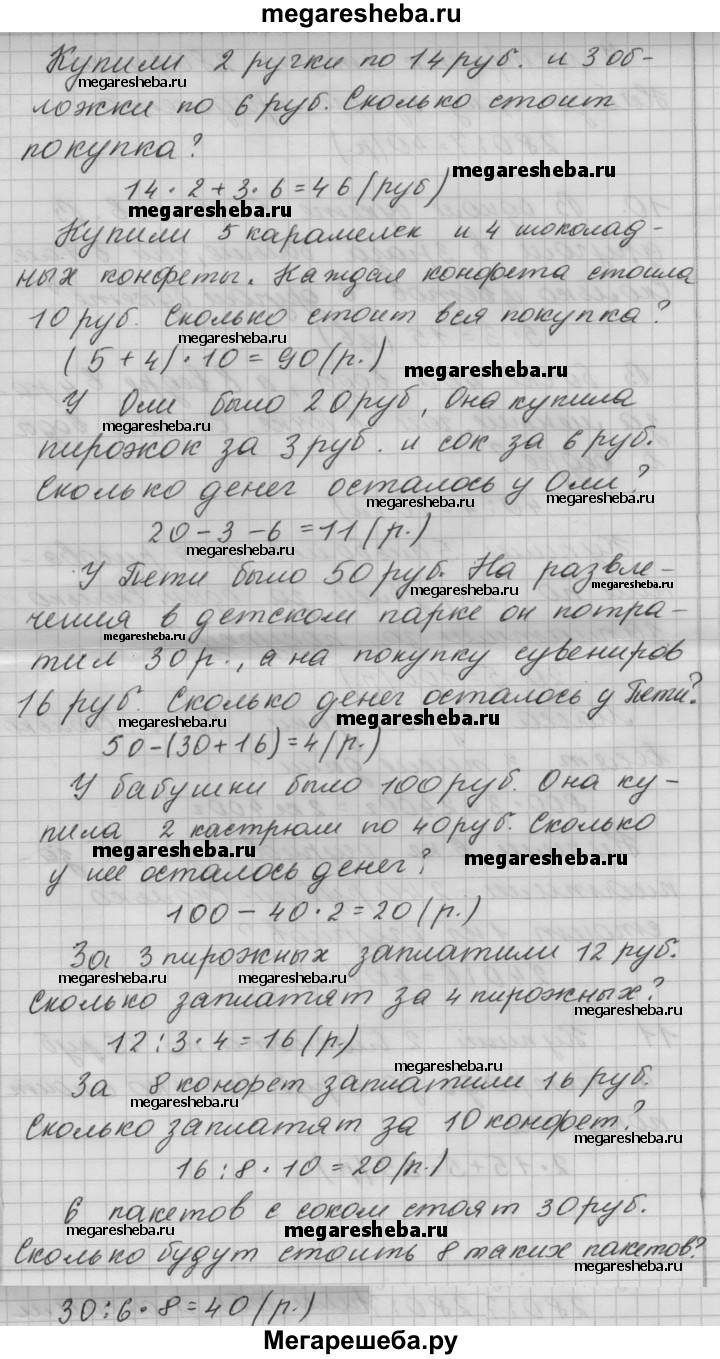 megaresheba.ru
Купили 2 ручки по 14 руб. и 3 об-
megaresheba.ru
ложки по 6 руб. Сколько стоит
покупка?
megaresheba.ru
14 · 2 + 3 · 6 = 46 (руб)
megaresheba.ru
Купили 5 карамелек и 4 шоколад-
ных конфеты. Каждая конфета стоила
10 руб. Сколько стоит вся покупка?
megaresheba.ru
(5 + 4) · 10 = 90 (р.)
megaresheba.ru
У Оли было 20 руб, Она купила
megaresheba.ru
пирожок за 3 руб. и сок за 6 руб.
Сколько денег осталось у Оли?
megaresheba.ru
20 - 3 - 6 = 11 (р.)
megaresheba.ru
У Пети было 50 руб. На развле-
megaresheba.ru
чения в детском парке он потра-
megaresheba.ru
тил 30 р., а на покупку сувениров
16 руб. Сколько денег осталось у Пети?
megaresheba.ru
megaresheba.ru
50 - (30 + 16) = 4 (р.)
У бабушки было 100 руб. Она ку-
пила 2 кастрюли по 40 руб. Сколько
megaresheba.ru
megaresheba.ru
у нее осталось денег?
100 - 40 · 2 = 20 (р.)
За 3 пирожных заплатили 12 руб.
megaresheba.ru
megaresheba.ru
Сколько заплатят за 4 пирожных?
megaresheba.ru
12 : 3 · 4 = 16 (р.)
megaresheba.ru
За 8 конфет заплатили 16 руб.
megaresheba.ru
Сколько заплатят за 10 конфет?
megaresheba.ru
16 : 8 · 10 = 20 (р.)
6 пакетов с соком стоят 30 руб.
megaresheba.ru
megaresheba.ru
megaresheba.ru
Сколько будут стоить 8 таких пакетов?
30 : 6 · 8 = 40 (р.)
Мегарешеба.ру